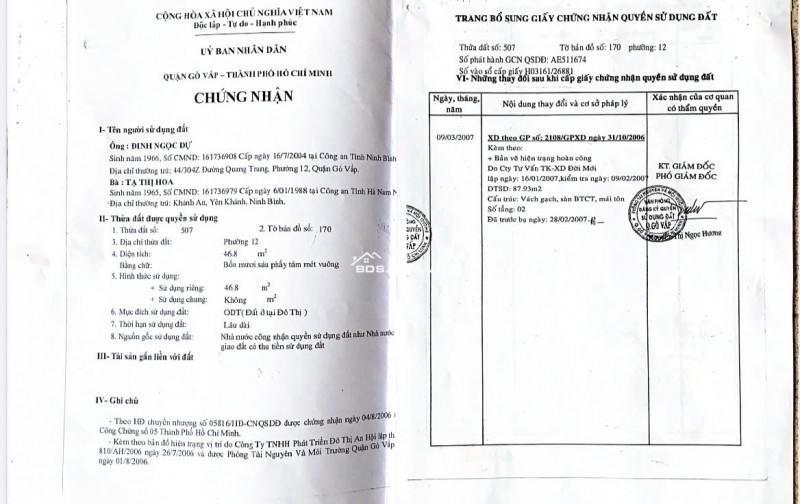 CỘNG HÒA XÃ HỘI CHỦ NGHĨA VIỆT NAM
Độc lập - Tự do - Hạnh phúc
UỶ BAN NHÂN DÂN
QUẬN GÒ VẤP – THÀNH PHỐ HỒ CHÍ MINH
CHỨNG NHẬN
I- Tên người sử dụng đất
Ông : ĐINH NGỌC DỰ
Sinh năm 1966, Số CMND: 161736908 Cấp ngày 16/7/2004 tại Công an Tỉnh Ninh Bình
Địa chỉ thường trú: 44/304Z Đường Quang Trung, Phường 12, Quận Gò Vấp.
Bà : TẠ THỊ HOA
Sinh năm 1965, Số CMND: 161736979 Cấp ngày 6/01/1988 tại Công an Tỉnh Hà Nam N
Địa chỉ thường trú: Khánh An, Yên Khánh, Ninh Bình.
II- Thửa đất được quyền sử dụng
1. Thửa đất số: 507 2. Tờ bản đồ số: 170
3. Địa chỉ thửa đất: Phường 12
4. Diện tích: 46.8 m²
Bằng chữ: Bốn mươi sáu phẩy tám mét vuông
5. Hình thức sử dụng:
+ Sử dụng riêng: 46.8 m²
+ Sử dụng chung: Không m²
6. Mục đích sử dụng đất: ODT( Đất ở tại Đô Thị )
7. Thời hạn sử dụng đất: Lâu dài
8. Nguồn gốc sử dụng đất: Nhà nước công nhận quyền sử dụng đất như Nhà nước
giao đất có thu tiền sử dụng đất
III- Tài sản gắn liền với đất
IV- Ghi chú
- Theo HĐ chuyển nhượng số 05816/HĐ-CNQSDĐ được chứng nhận ngày 04/8/2006
Công Chứng số 05 Thành Phố Hồ Chí Minh.
- Kèm theo bản đồ hiện trạng vị trí do Công Ty TNHH Phát Triển Đô Thị An Hội lập th
810/AH/2006 ngày 26/7/2006 và được Phòng Tài Nguyên Và Môi Trường Quận Gò Vấp
ngày 01/8/2006.
BDS
TRANG BỔ SUNG GIẤY CHỨNG NHẬN QUYỀN SỬ DỤNG ĐẤT
Thửa đất số: 507 Tờ bản đồ số: 170 phường: 12
Số phát hành GCN QSDĐ: AE511674
Số vào sổ cấp giấy H03161/26881
VI- Những thay đổi sau khi cấp giấy chứng nhận quyền sử dụng đất
Ngày, tháng, năm
Nội dung thay đổi và cơ sở pháp lý
Xác nhận của cơ quan có thẩm quyền
09/03/2007
XD theo GP số: 2108/GPXD ngày 31/10/2006
Kèm theo:
+ Bản vẽ hiện trạng hoàn công
Do Cty Tư Vấn TK-XD Đời Mới
lập ngày: 16/01/2007,kiểm tra ngày: 09/02/2007
DTSD: 87.93m2
Cấu trúc: Vách gạch, sàn BTCT, mái tôn
Số tầng: 02
Đã trước bạ ngày: 28/02/2007
KT. GIÁM ĐỐC
PHÓ GIÁM ĐỐC
VĂN PHÒNG
ĐĂNG KÝ QUYỀN
SỬ DỤNG ĐẤT
Q.GÒ VẤP
Thị Ngọc Hương